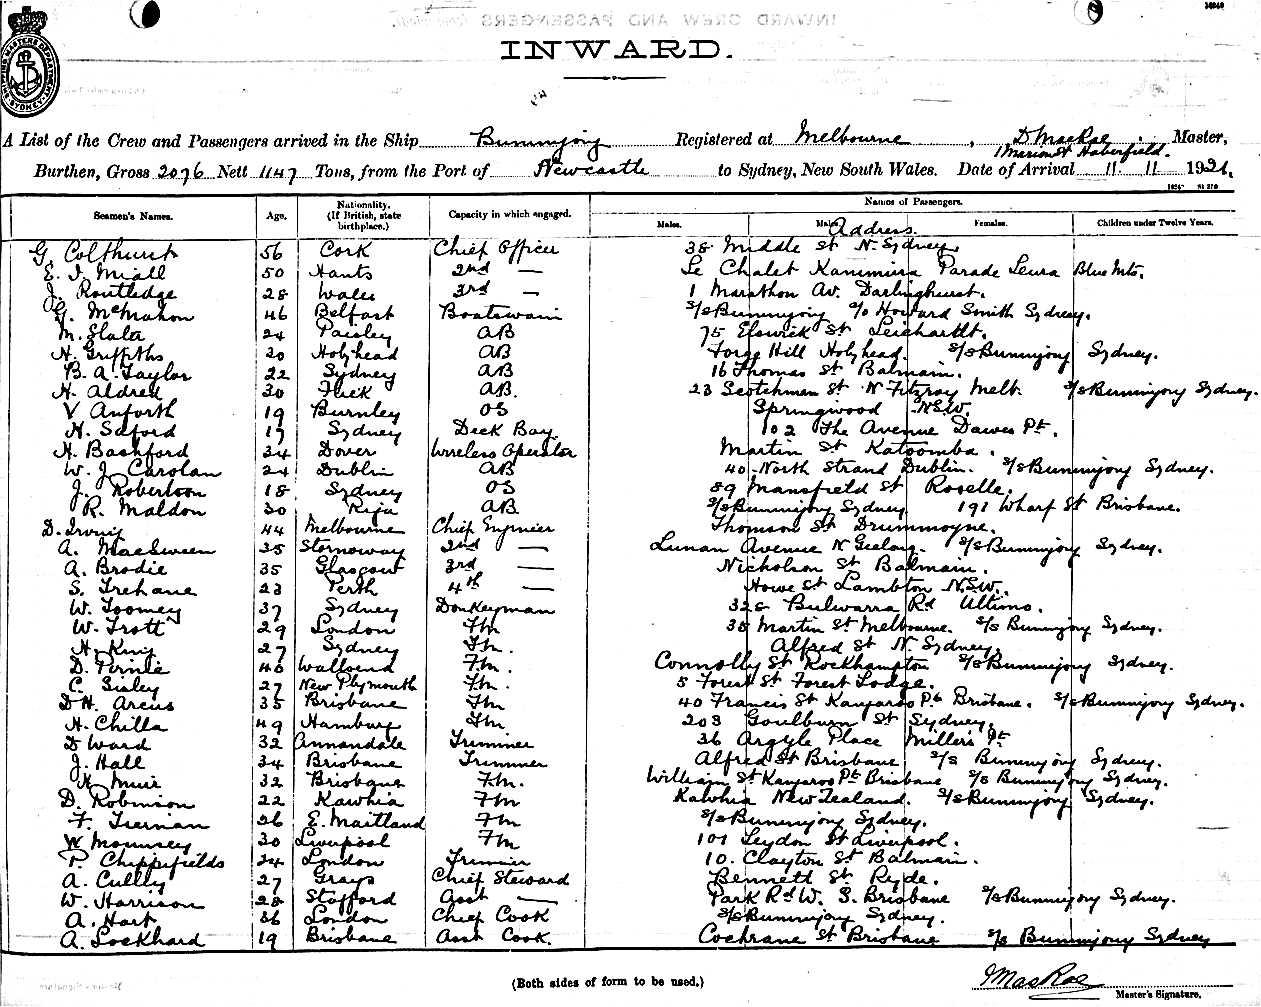 INWARD.
A List of the Crew and Passengers arrived in the Ship Bunninyong Registered at Melbourne, D MacRae Master,
1 Marion St Haberfield.
Burthen, Gross 2076 Nett 1147 Tons, from the Port of Newcastle to Sydney, New South Wales. Date of Arrival 11 11 1921.
Seamen's Names. Age. Nationality. (If British, state birthplace.) Capacity in which engaged. Names of Passengers.
Males. Males. Females. Children under Twelve Years.
Address.
G. Colthurst 56 Cork Chief Officer 38 Middle St N. Sydney
E. J. Miall 50 Hants 2nd — Le Chalet Parade Leura Blue Mts.
J. Routledge 28 Wales 3rd — 1 Marathon Av. Darlinghurst.
G. McMahon 46 Belfast Boatswain S/S Bunninyong c/o Howard Smith Sydney.
M. Slater 24 Paisley AB 75 Elswick St Leichardt.
H. Griffiths 20 Holyhead AB Forge Hill Holyhead. S/S Bunninyong Sydney.
B. A. Taylor 22 Sydney AB 16 Thomas St Balmain.
H. Aldred 30 AB. 23 Scotchmer St N Fitzroy Melb. S/S Bunninyong Sydney.
V Anforth 19 Burnley OS Springwood N.S.W.
H. Saford 17 Sydney Deck Boy. 102 The Avenue Dawes Pt.
H. Bashford 34 Dover Wireless Operator Martin St Katoomba.
W. J. Carolan 24 Dublin AB 40 North Strand Dublin. S/S Bunninyong Sydney.
J. Robertson 18 Sydney OS 89 Mansfield St Roselle.
R. Maldon 30 Riga AB S/S Bunninyong Sydney 191 Wharf St Brisbane.
D. Irving 44 Melbourne Chief Engineer Thomson St Drummoyne.
A. MacSween 35 Stornoway 2nd — Lunan Avenue N Geelong. S/S Bunninyong Sydney.
A. Brodie 35 Glasgow 3rd — Nicholson St Balmain.
S. Trehane 23 Perth 4th — Howe St Lambton N.S.W.
W. Toomey 37 Sydney Donkeyman 328 Bulwarra Rd Ultimo.
W. Trott 29 London Fm 38 Martin St Melbourne. S/S Bunninyong Sydney.
H. King 27 Sydney Fm. Alfred St N. Sydney.
D. Pirnie 40 Wallsend Fm. Connolly St Rockhampton S/S Bunninyong Sydney.
C. Sisley 27 New Plymouth Fm. 5 Forest St Forest Lodge.
D H. Arcus 35 Brisbane Fm 40 Francis St Kangaroo Pt Brisbane. S/S Bunninyong Sydney.
H. Chilla 49 Hamburg Fm 203 Goulburn St Sydney.
D Ward 32 Annandale Trimmer 36 Argyle Place Millers Pt
J. Hall 34 Brisbane Trimmer Alfred St Brisbane S/S Bunninyong Sydney.
K. Muir 32 Brisbane Fm. William St Kangaroo Pt Brisbane S/S Bunninyong Sydney.
D. Robinson 22 Kawhia Fm Kawhia New Zealand. S/S Bunninyong Sydney.
F. Tiernan 26 E. Maitland Fm S/S Bunninyong Sydney.
W Mounsey 30 Liverpool Fm 101 Leydon St Liverpool.
P. Chippifields 34 London Trimmer 10. Clayton St Balmain.
A. Cullly 27 Grays Chief Steward Bennett St Ryde.
W. Harrison 28 Stafford Asst — Park Rd W. S. Brisbane S/S Bunninyong Sydney.
A. Hart 36 London Chief Cook S/S Bunninyong Sydney.
A. Lockhard 19 Brisbane Asst Cook. Cochrane St Brisbane S/S Bunninyong Sydney
(Both sides of form to be used.)
MacRae
Master's Signature.